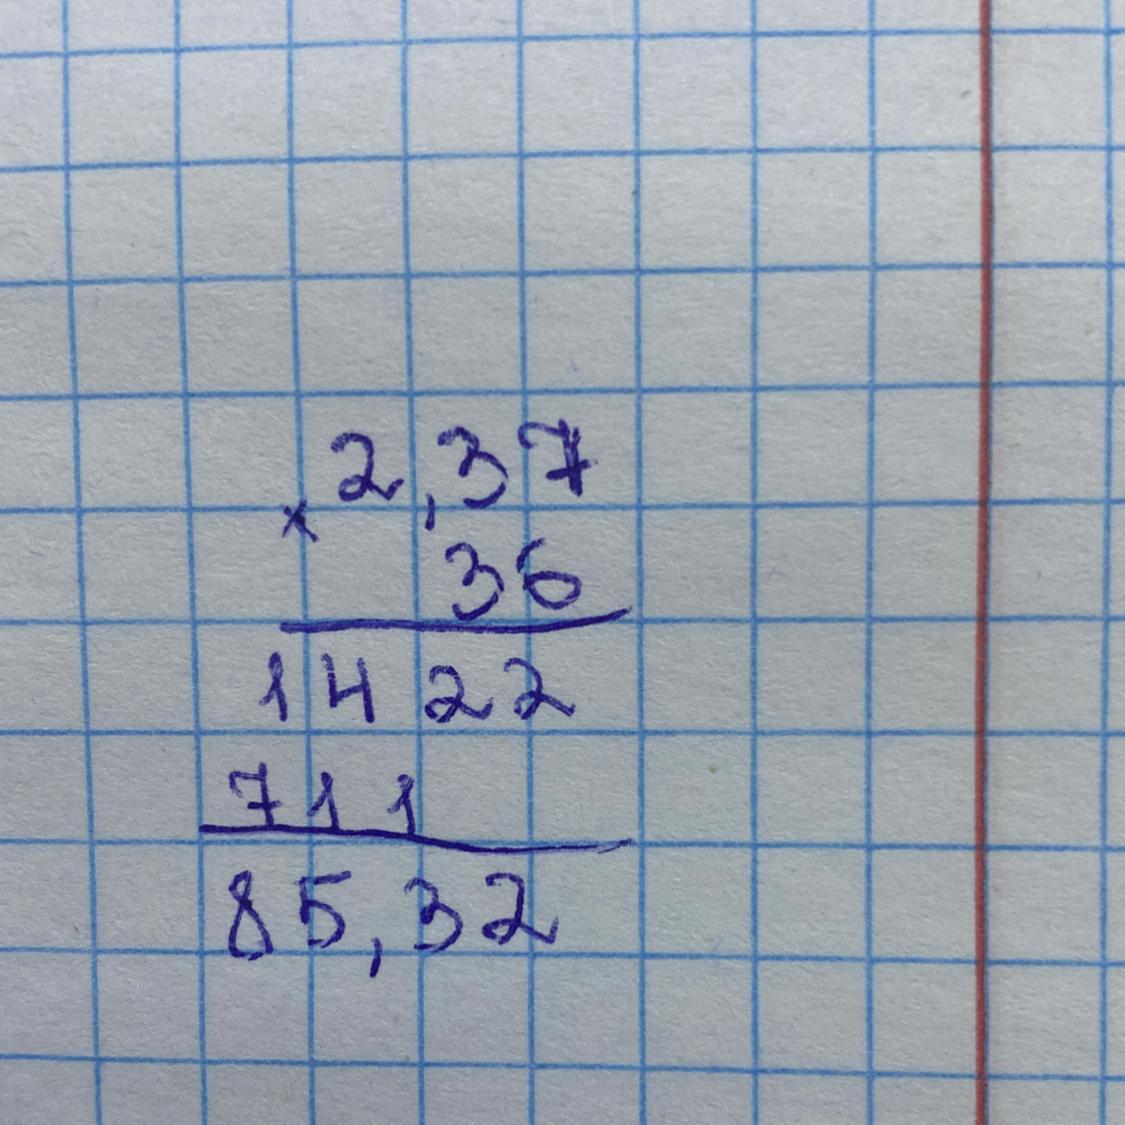 2,37
×
36
1422
711
85,32